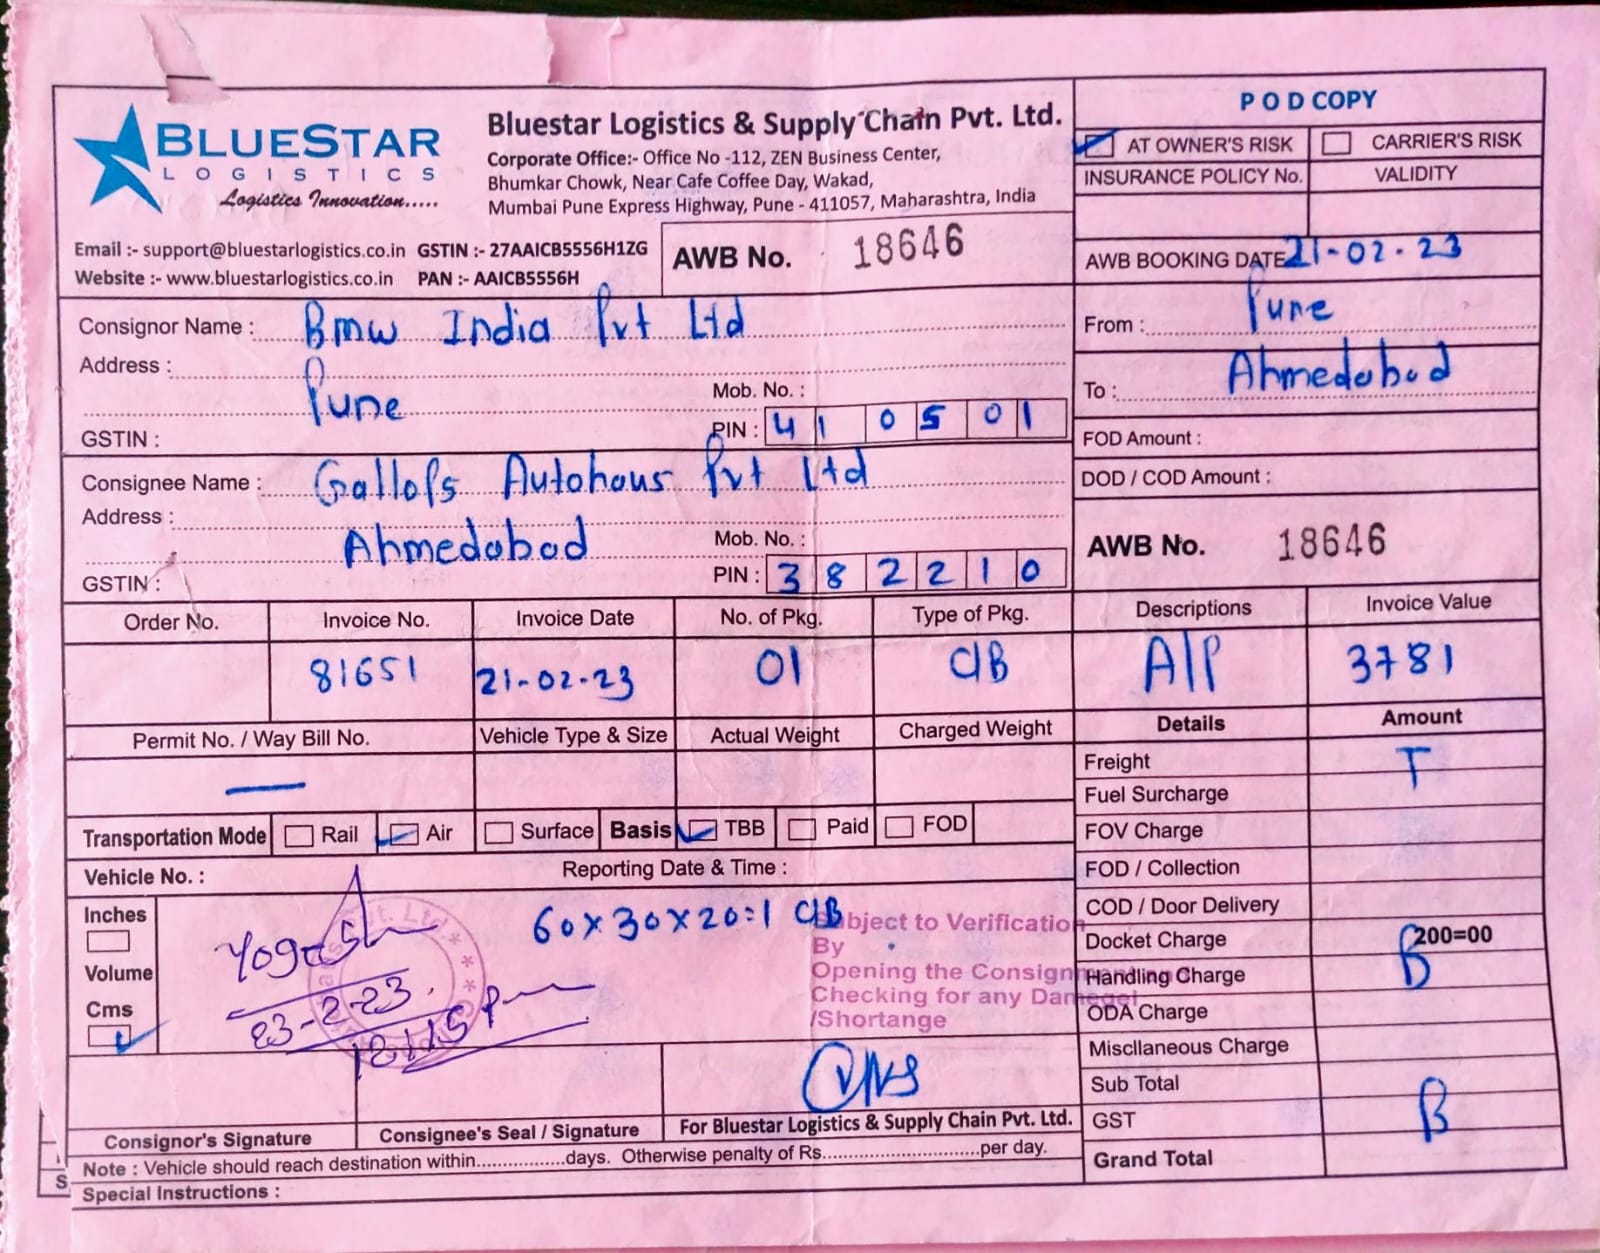 BLUESTAR
LOGISTICS
Logistics Innovation.....
Bluestar Logistics & Supply Chain Pvt. Ltd.
Corporate Office:- Office No -112, ZEN Business Center,
Bhumkar Chowk, Near Cafe Coffee Day, Wakad,
Mumbai Pune Express Highway, Pune - 411057, Maharashtra, India
Email :- support@bluestarlogistics.co.in GSTIN :- 27AAICB5556H1ZG
Website :- www.bluestarlogistics.co.in PAN :- AAICB5556H
AWB No. 18646
POD COPY
AT OWNER'S RISK CARRIER'S RISK
INSURANCE POLICY No. VALIDITY
AWB BOOKING DATE 21-02-23
Consignor Name : Bmw India Pvt Ltd
Address :
Pune
Mob. No. :
GSTIN :
PIN : 410501
From : Pune
To : Ahmedabad
FOD Amount :
DOD / COD Amount :
Consignee Name : Gallops Autohaus Pvt Ltd
Address :
Ahmedabad
Mob. No. :
GSTIN :
PIN : 382210
AWB No. 18646
Order No. Invoice No. Invoice Date No. of Pkg. Type of Pkg. Descriptions Invoice Value
81651 21-02-23 01 C/B A/P 3781
Permit No. / Way Bill No. Vehicle Type & Size Actual Weight Charged Weight Details Amount
—
Freight T
Fuel Surcharge
FOV Charge
FOD / Collection
COD / Door Delivery
Docket Charge 200=00
Handling Charge B
ODA Charge
Miscllaneous Charge
Sub Total
GST B
Grand Total
Transportation Mode Rail Air Surface Basis TBB Paid FOD
Vehicle No. : Reporting Date & Time :
Inches
Volume
Cms
60x30x20=1 C/B
Subject to Verification
By
Opening the Consignment
Checking for any Damege
/Shortange
Yogesh
23-2-23
Consignor's Signature Consignee's Seal / Signature For Bluestar Logistics & Supply Chain Pvt. Ltd.
Note : Vehicle should reach destination within.................days. Otherwise penalty of Rs..............................per day.
Special Instructions :